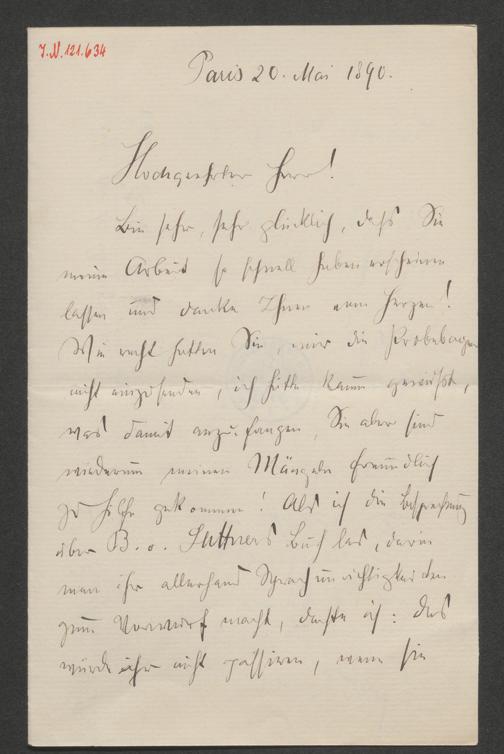 J.N. 121.634
Paris 20. Mai 1890.
Hochgeehrter Herr!
Bin sehr, sehr glücklich, daß Sie
meine Arbeit so schnell haben erscheinen
lassen und danke Ihnen vom Herzen!
Wie recht hatten Sie, mir die Probebogen
nicht einzusenden, ich hätte kaum gewußt,
was damit anzufangen, Sie aber sind
wiederum meinen Mängeln freundlich
zu Hilfe gekommen! Als ich die Besprechung
über B. v. Suttners Buch las, darin
man ihr allerhand Sprachunrichtigkeiten
zum Vorwurf macht, dachte ich: das
würde ihr nicht passiren, wenn sie